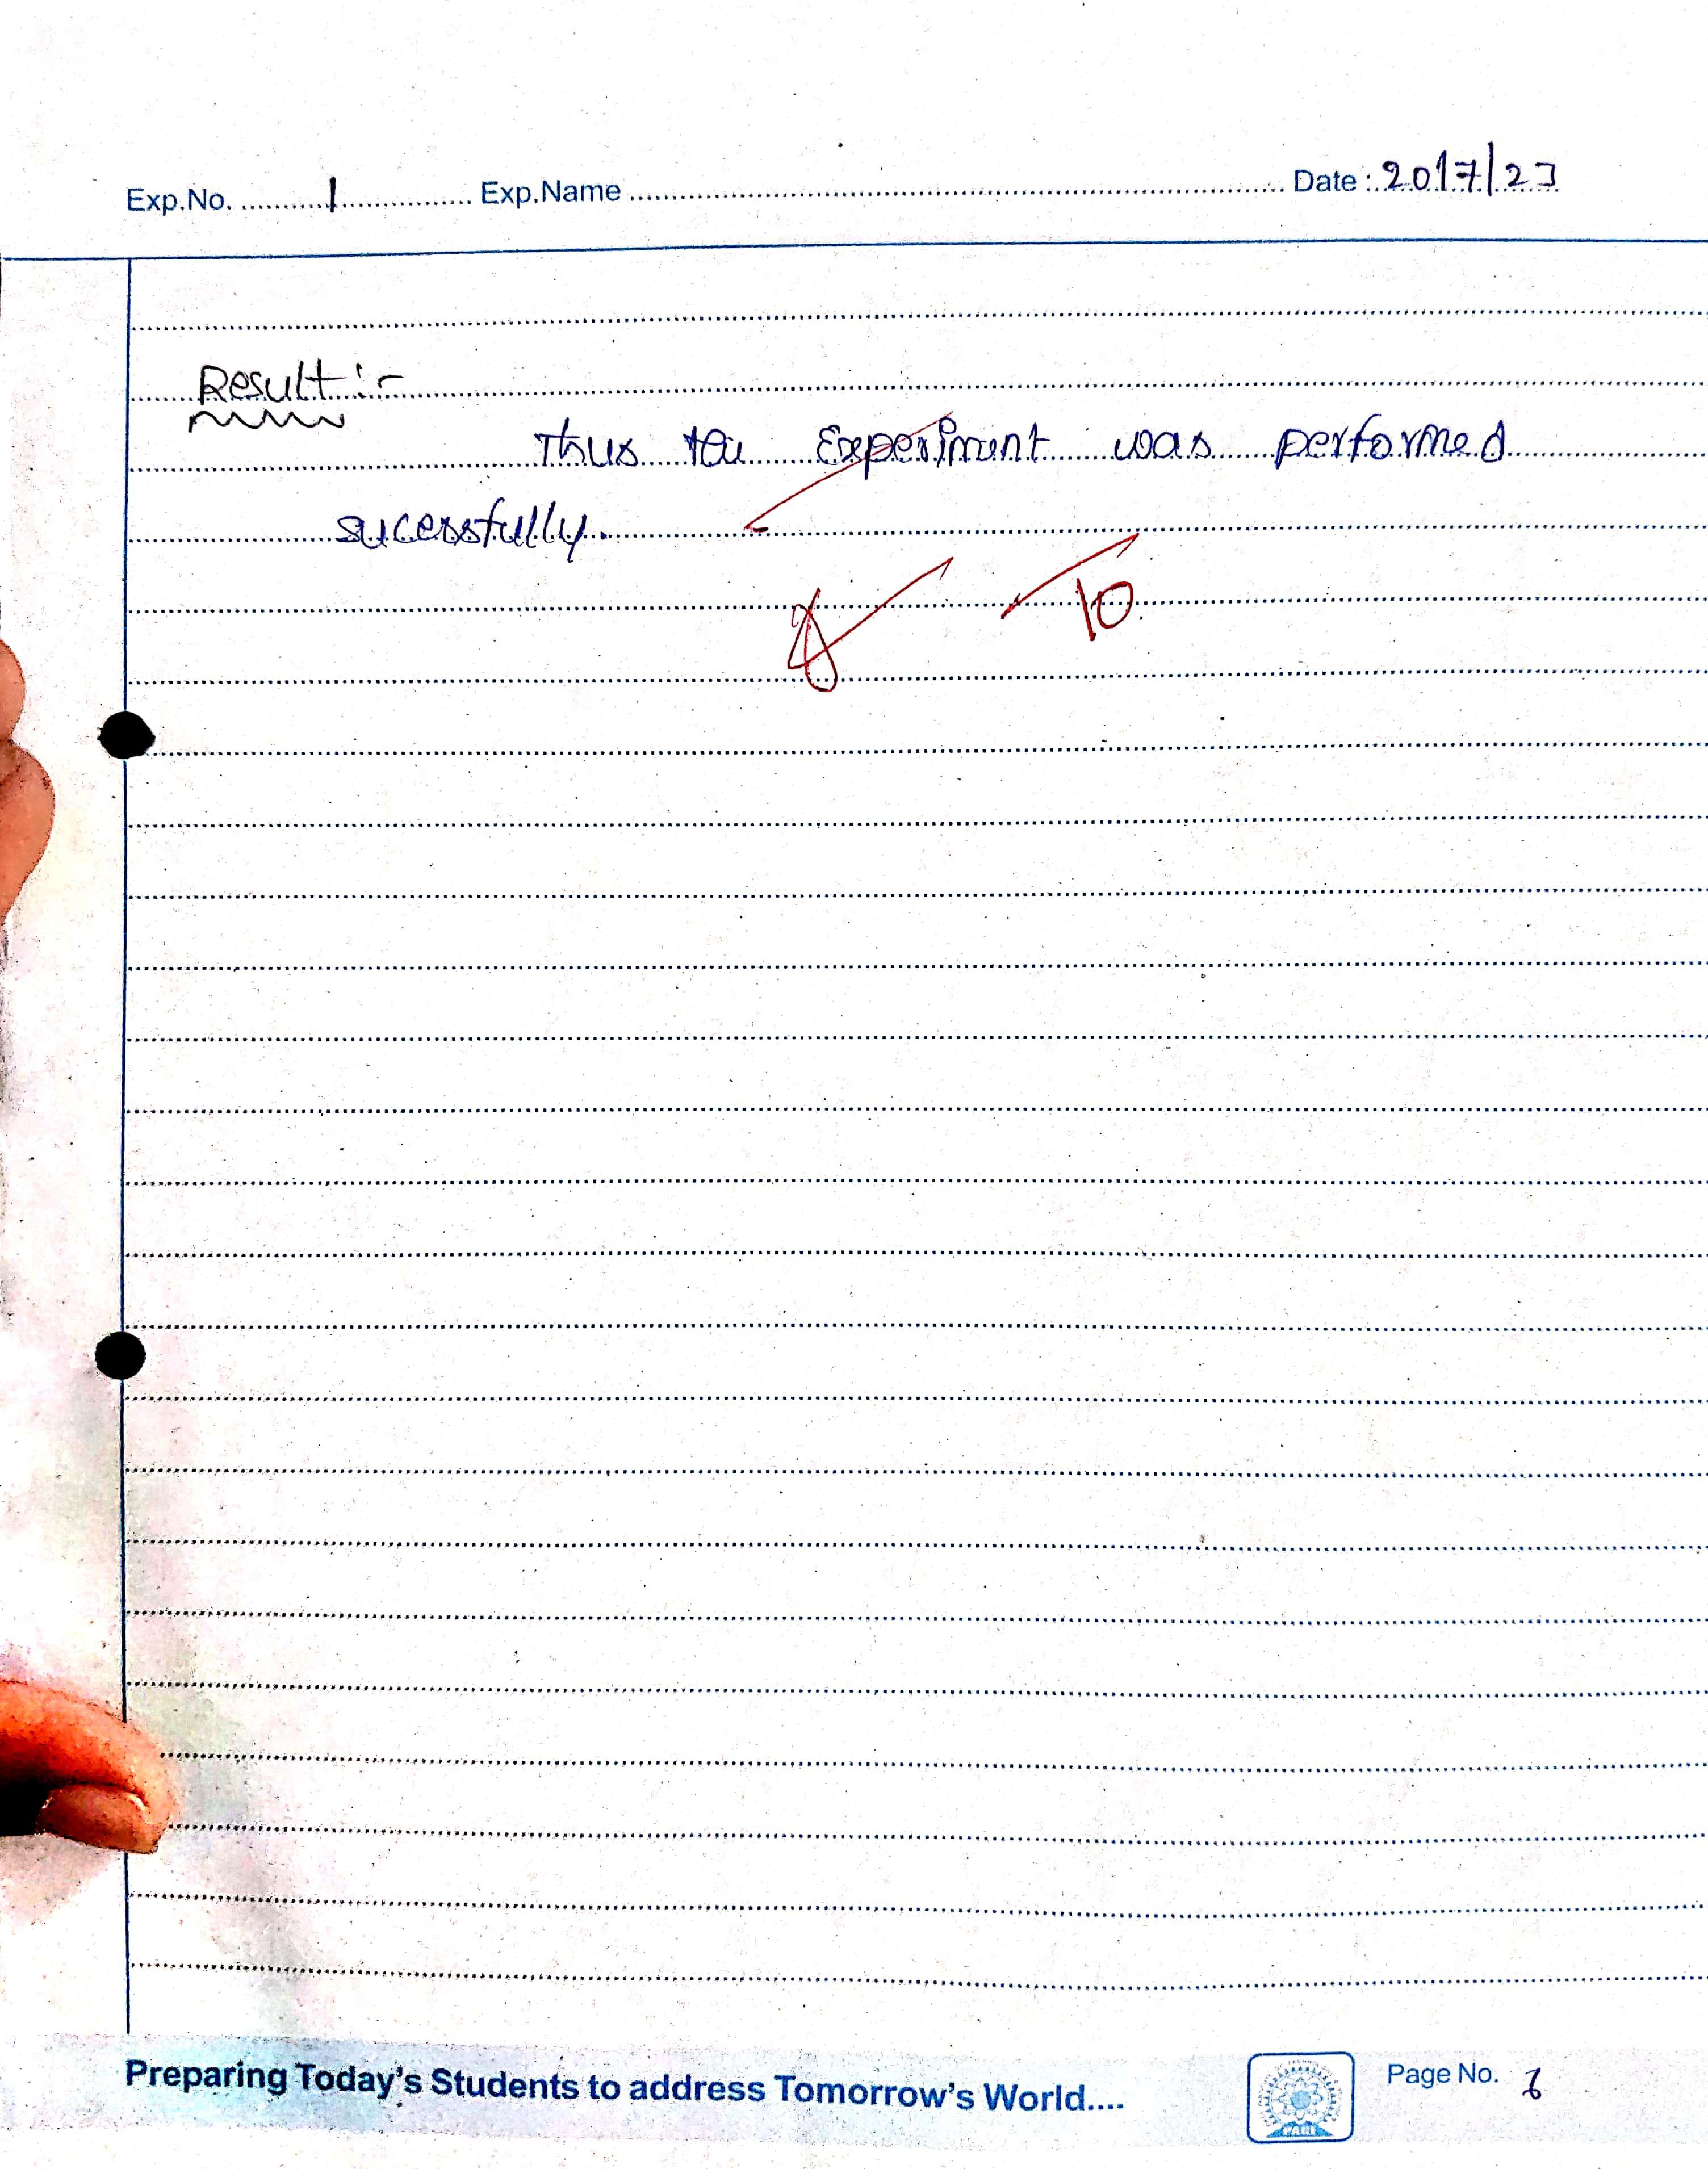 Exp.No. 1 Exp.Name Date : 20/7/23
Result :-
Thus the Experiment was performed
sucessfully.
8 10
Preparing Today's Students to address Tomorrow's World....
Page No. 6
PARI